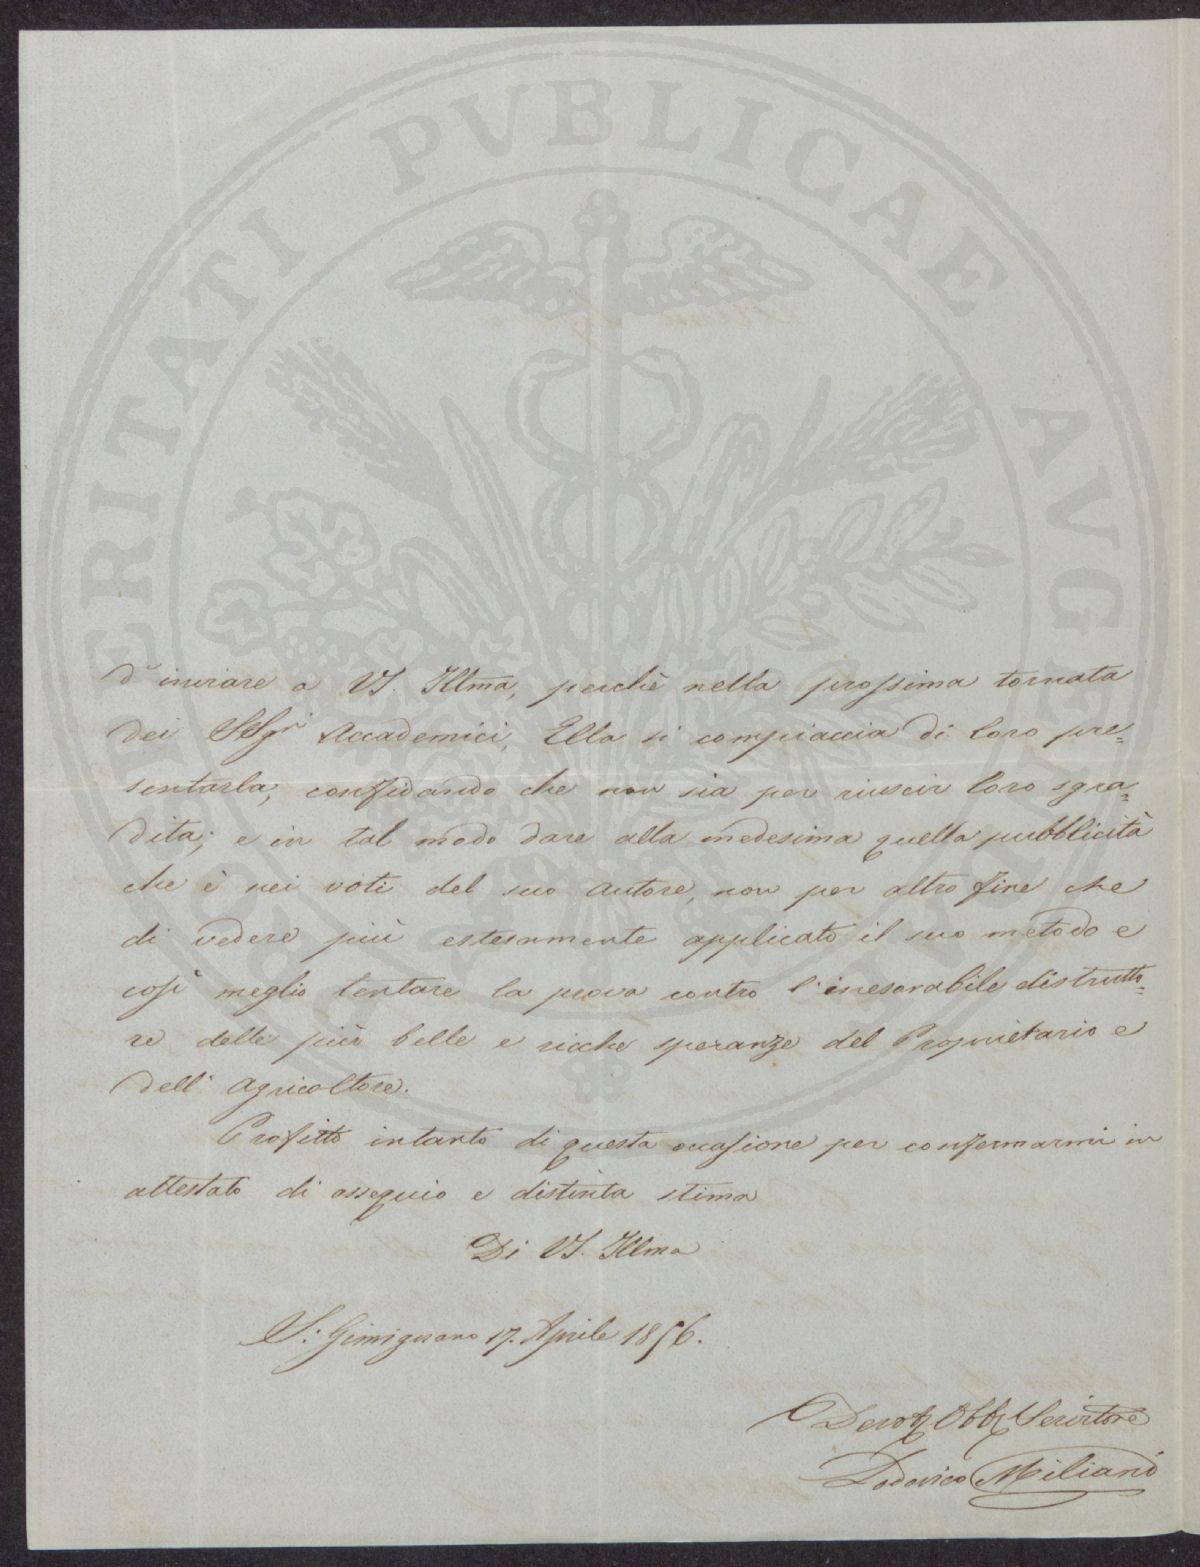 PROSPERITATI PUBLICAE AUGENDAE
d'inviare a VS. Illma, perchè nella prossima tornata
dei SSgri Accademici, Ella si compiaccia di loro pre=
sentarla, confidando che non sia per riuscir loro sgra=
dita; e in tal modo dare alla medesima quella pubblicità
che è nei voti del suo autore, non per altro fine che
di vedere più estesamente applicato il suo metodo e
così meglio tentare la prova contro l'inesorabile distrutto=
re delle più belle e ricche speranze del Proprietario e
dell'Agricoltore.
Profitto intanto di questa occasione per confermarmi in
attestato di ossequio e distinta stima
Di VS. Illma
S. Gimignano 17. Aprile 1856.
Devot Obb Servitore
Lodovico Miliani